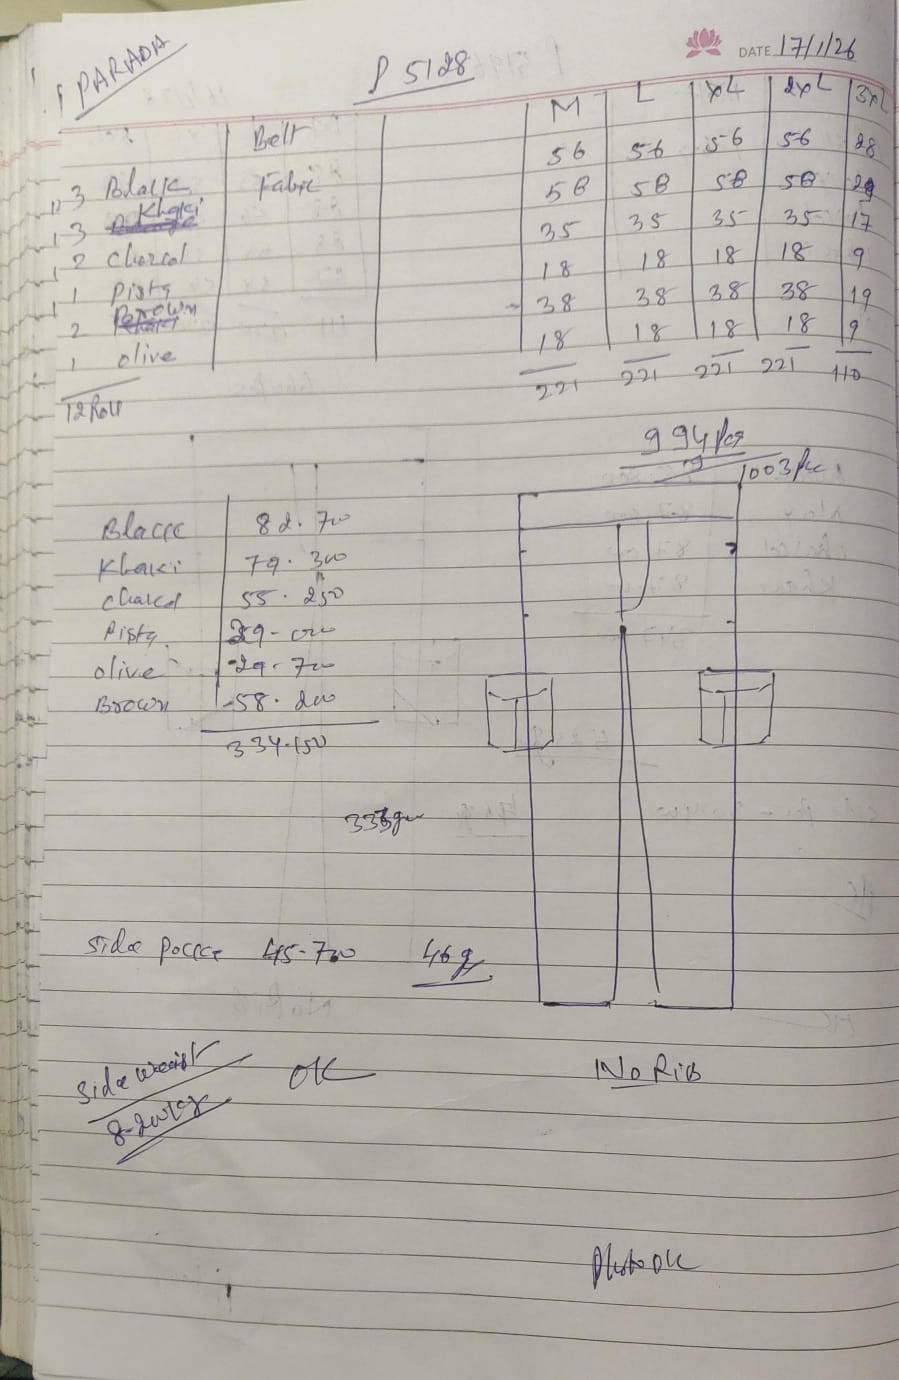 PARADA
P 5128
DATE 17/1/26
M L XL 2XL 3XL
Belt
56 56 56 56 28
3 Black Fabric 58 58 58 58 29
3 Khaki 35 35 35 35 17
2 Charcol 18 18 18 18 9
1 Pista 38 38 38 38 19
2 Brown 18 18 18 18 9
1 olive
221 221 221 221 110
12 Roll
994 pcs
9
1003 pcs
Black 82.700
Khaki 79.300
Charcol 55.250
Pista 29-000
olive 29-700
Brown 58.200
334.150
Side pocket 45-700 46g
Side waist OK No Rib
8-200kg
Photo OK